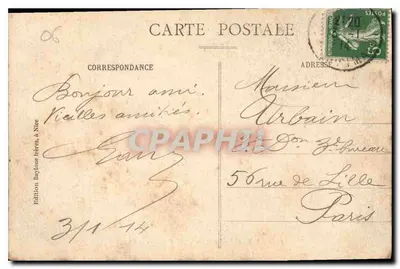 06
CARTE POSTALE
CORRESPONDANCE
ADRESSE
Bonjour ami.
Vieilles amitiés.
3/1/14
Monsieur
Urbain
56 rue de Lille
Paris
Edition Baylone frères, à Nice
CPAPHIL